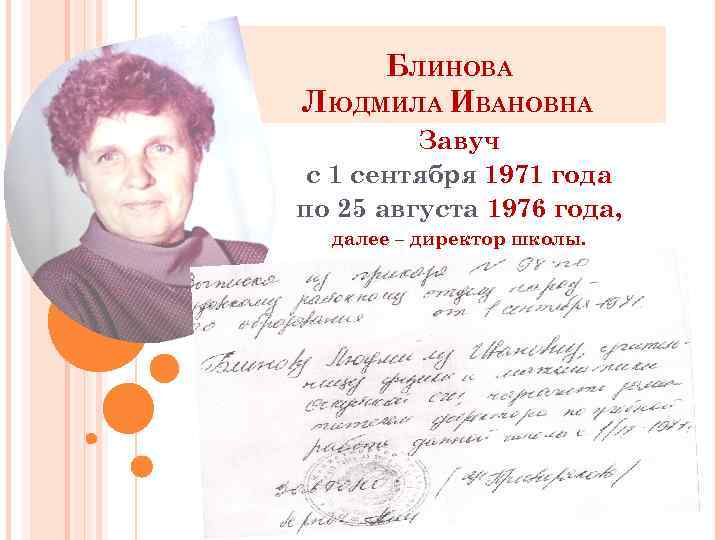 Блинова
Людмила Ивановна
Завуч
с 1 сентября 1971 года
по 25 августа 1976 года,
далее – директор школы.
Выписка из приказа № 98-по
районному отделу народ-
го образования от 1 сентября 1971.
Блинову Людмилу Ивановну, учитель-
ницу физики и математики
школы, назначить замес-
тителем директора по учебной
работе данной школы с 1/IX-1971.